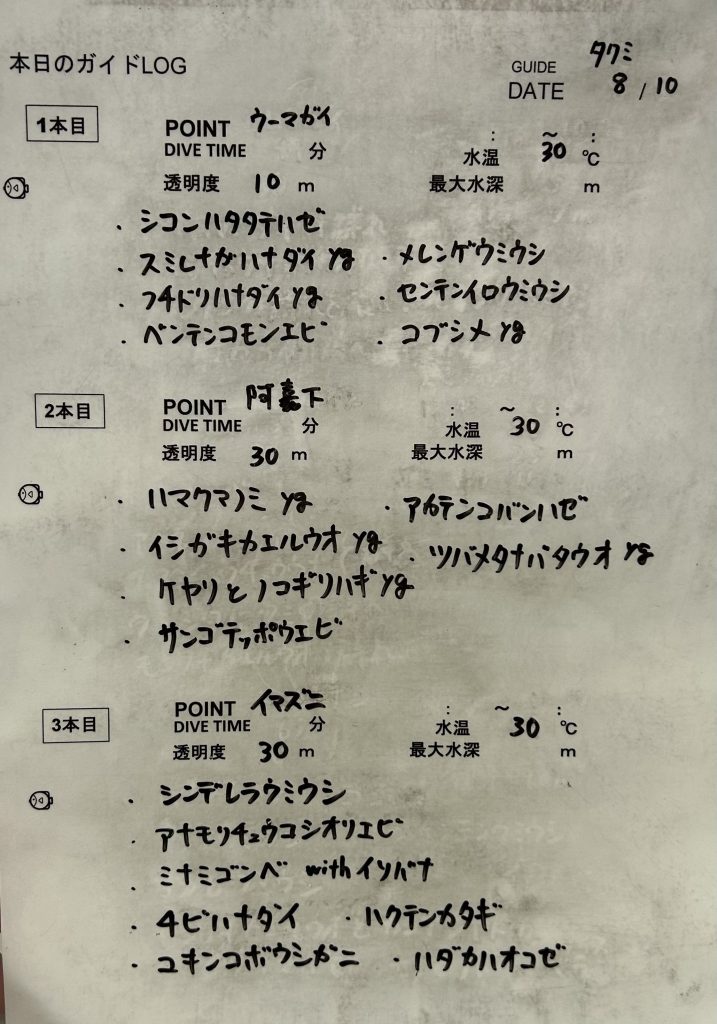 本日のガイドLOG
GUIDE タクミ
DATE 8 / 10
1本目
POINT ウーマガイ
DIVE TIME 分 : ~ :
水温 30 ℃
透明度 10 m 最大水深 m
・シコンハタタテハゼ
・スミレナガハナダイ yg ・メレンゲウミウシ
・フチドリハナダイ yg ・センテンイロウミウシ
・ベンテンコモンエビ ・コブシメ yg
2本目
POINT 阿嘉下
DIVE TIME 分 : ~ :
水温 30 ℃
透明度 30 m 最大水深 m
・ハマクマノミ yg ・アカテンコバンハゼ
・イシガキカエルウオ yg ・ツバメタナバタウオ yg
・ケヤリとノコギリハギ yg
・サンゴテッポウエビ
3本目
POINT イマズニ
DIVE TIME 分 : ~ :
水温 30 ℃
透明度 30 m 最大水深 m
・シンデレラウミウシ
・アナモリチュウコシオリエビ
・ミナミゴンベ withイソバナ
・チビハナダイ ・ハクテンカタギ
・ユキンコボウシガニ ・ハダカハオコゼ